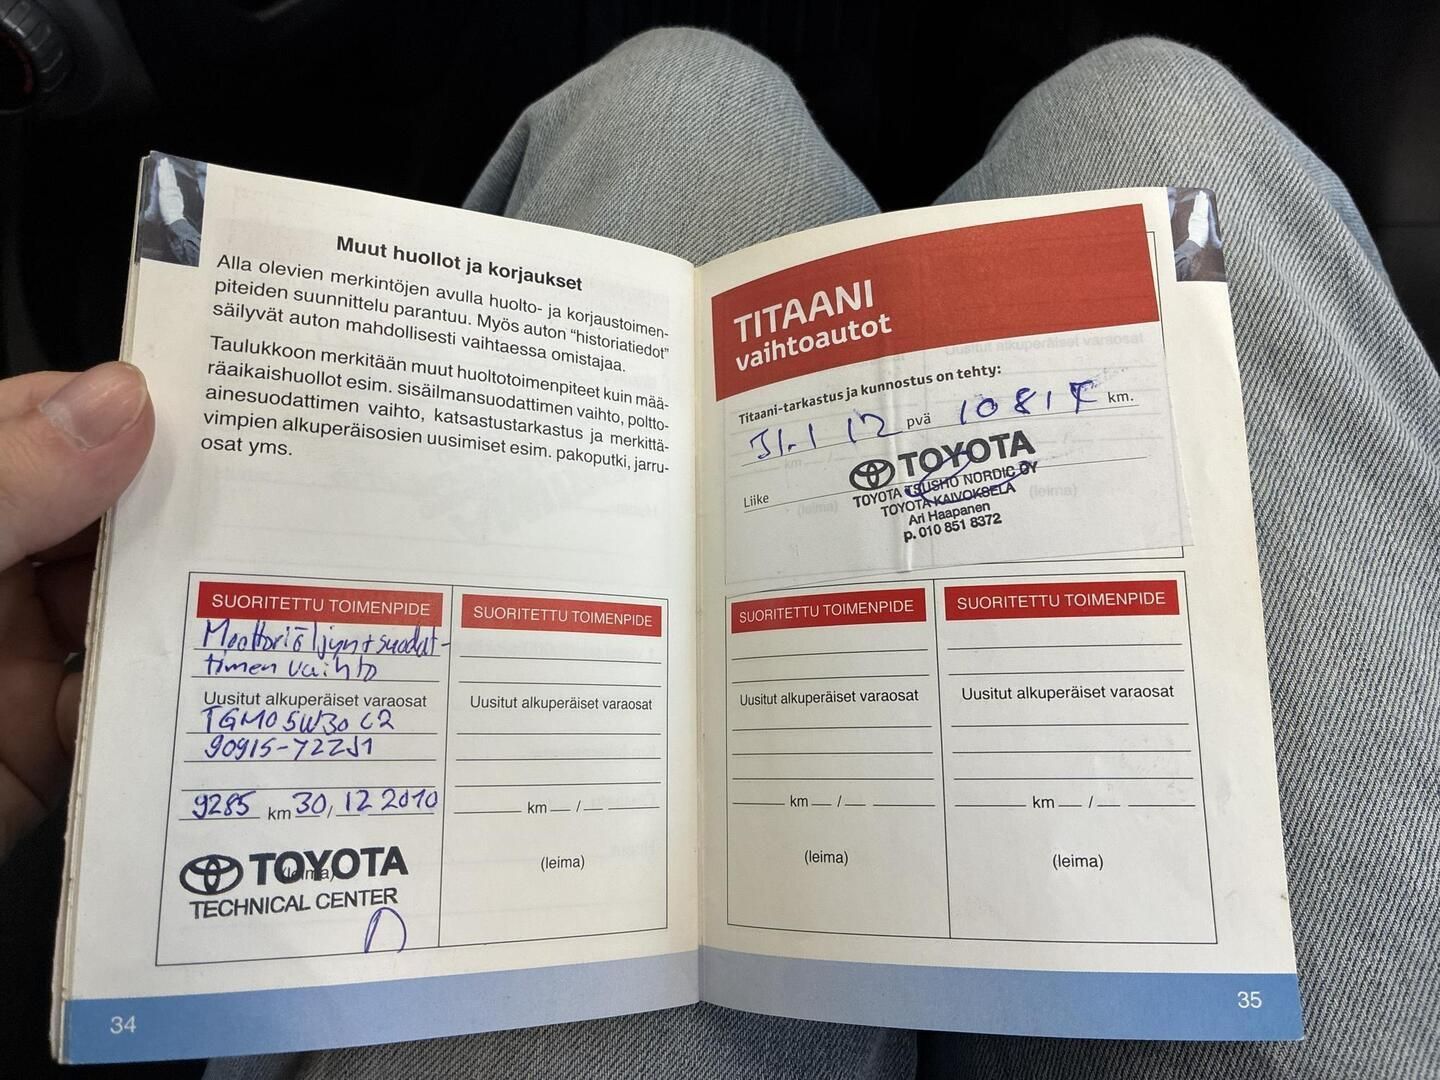 Muut huollot ja korjaukset
Alla olevien merkintöjen avulla huolto- ja korjaustoimen-
piteiden suunnittelu parantuu. Myös auton “historiatiedot”
säilyvät auton mahdollisesti vaihtaessa omistajaa.
Taulukkoon merkitään muut huoltotoimenpiteet kuin mää-
räaikaishuollot esim. sisäilmansuodattimen vaihto, poltto-
ainesuodattimen vaihto, katsastustarkastus ja merkittä-
vimpien alkuperäisosien uusimiset esim. pakoputki, jarru-
osat yms.
SUORITETTU TOIMENPIDE
Moottoriöljyn+suodat-
timen vaihto
Uusitut alkuperäiset varaosat
TGMO 5W30 C2
90915-YZZJ1
9285 km 30, 12 2010
(leima)
TOYOTA
TECHNICAL CENTER
SUORITETTU TOIMENPIDE
Uusitut alkuperäiset varaosat
km /
(leima)
34
TITAANI
vaihtoautot
Titaani-tarkastus ja kunnostus on tehty:
31.1 12 pvä km.
Liike
TOYOTA
TOYOTA TSUSHO NORDIC OY
TOYOTA KAIVOKSELA
Ari Haapanen
p. 010 851 8372
SUORITETTU TOIMENPIDE
Uusitut alkuperäiset varaosat
km /
(leima)
SUORITETTU TOIMENPIDE
Uusitut alkuperäiset varaosat
km /
(leima)
35